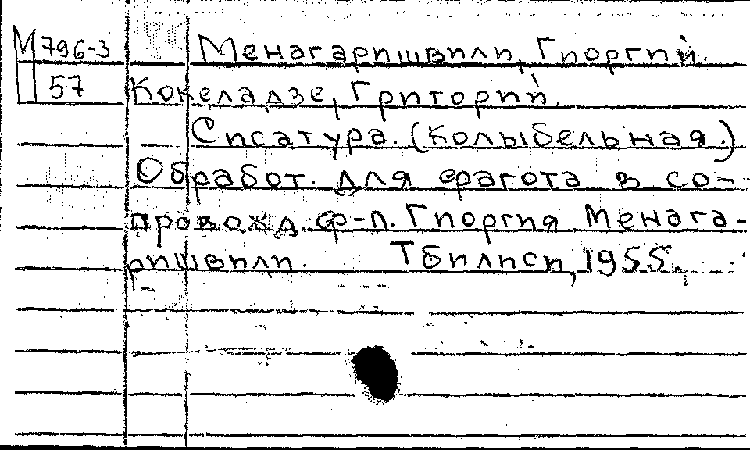 М 796-3 Менагаришвили, Гиоргий.
57 Кокеладзе, Григорий.
Сисатура. (Колыбельная.)
Обработ. для фагота в со-
провожд. ф-п. Гиоргия Менага-
ришвили. Тбилиси, 1955.